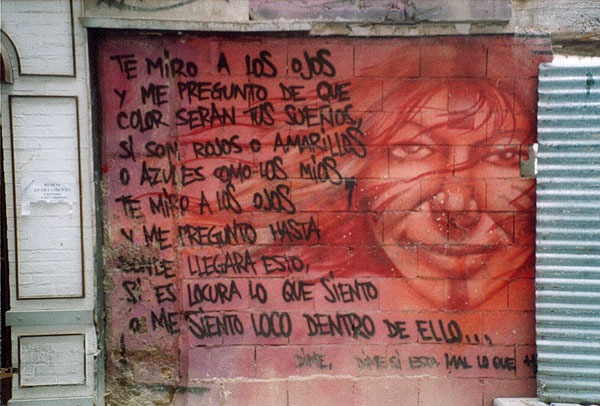 TE MIRO A LOS OJOS
Y ME PREGUNTO DE QUE
COLOR SERAN TUS SUEÑOS,
SI SON ROJOS O AMARILLOS
O AZULES COMO LOS MIOS,
TE MIRO A LOS OJOS
Y ME PREGUNTO HASTA
LLEGARA ESTO,
SI ES LOCURA LO QUE SIENTO
O ME SIENTO LOCO DENTRO DE ELLO...
DIME, DIME SI ESTA MAL LO QUE
BUSCO
APARTAMENTO